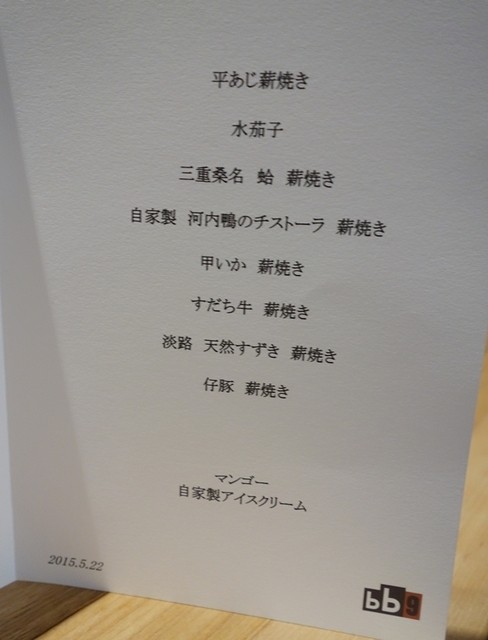 平あじ薪焼き
水茄子
三重桑名　蛤　薪焼き
自家製　河内鴨のチストーラ　薪焼き
甲いか　薪焼き
すだち牛　薪焼き
淡路　天然すずき　薪焼き
仔豚　薪焼き
マンゴー
自家製アイスクリーム
2015.5.22
bb9